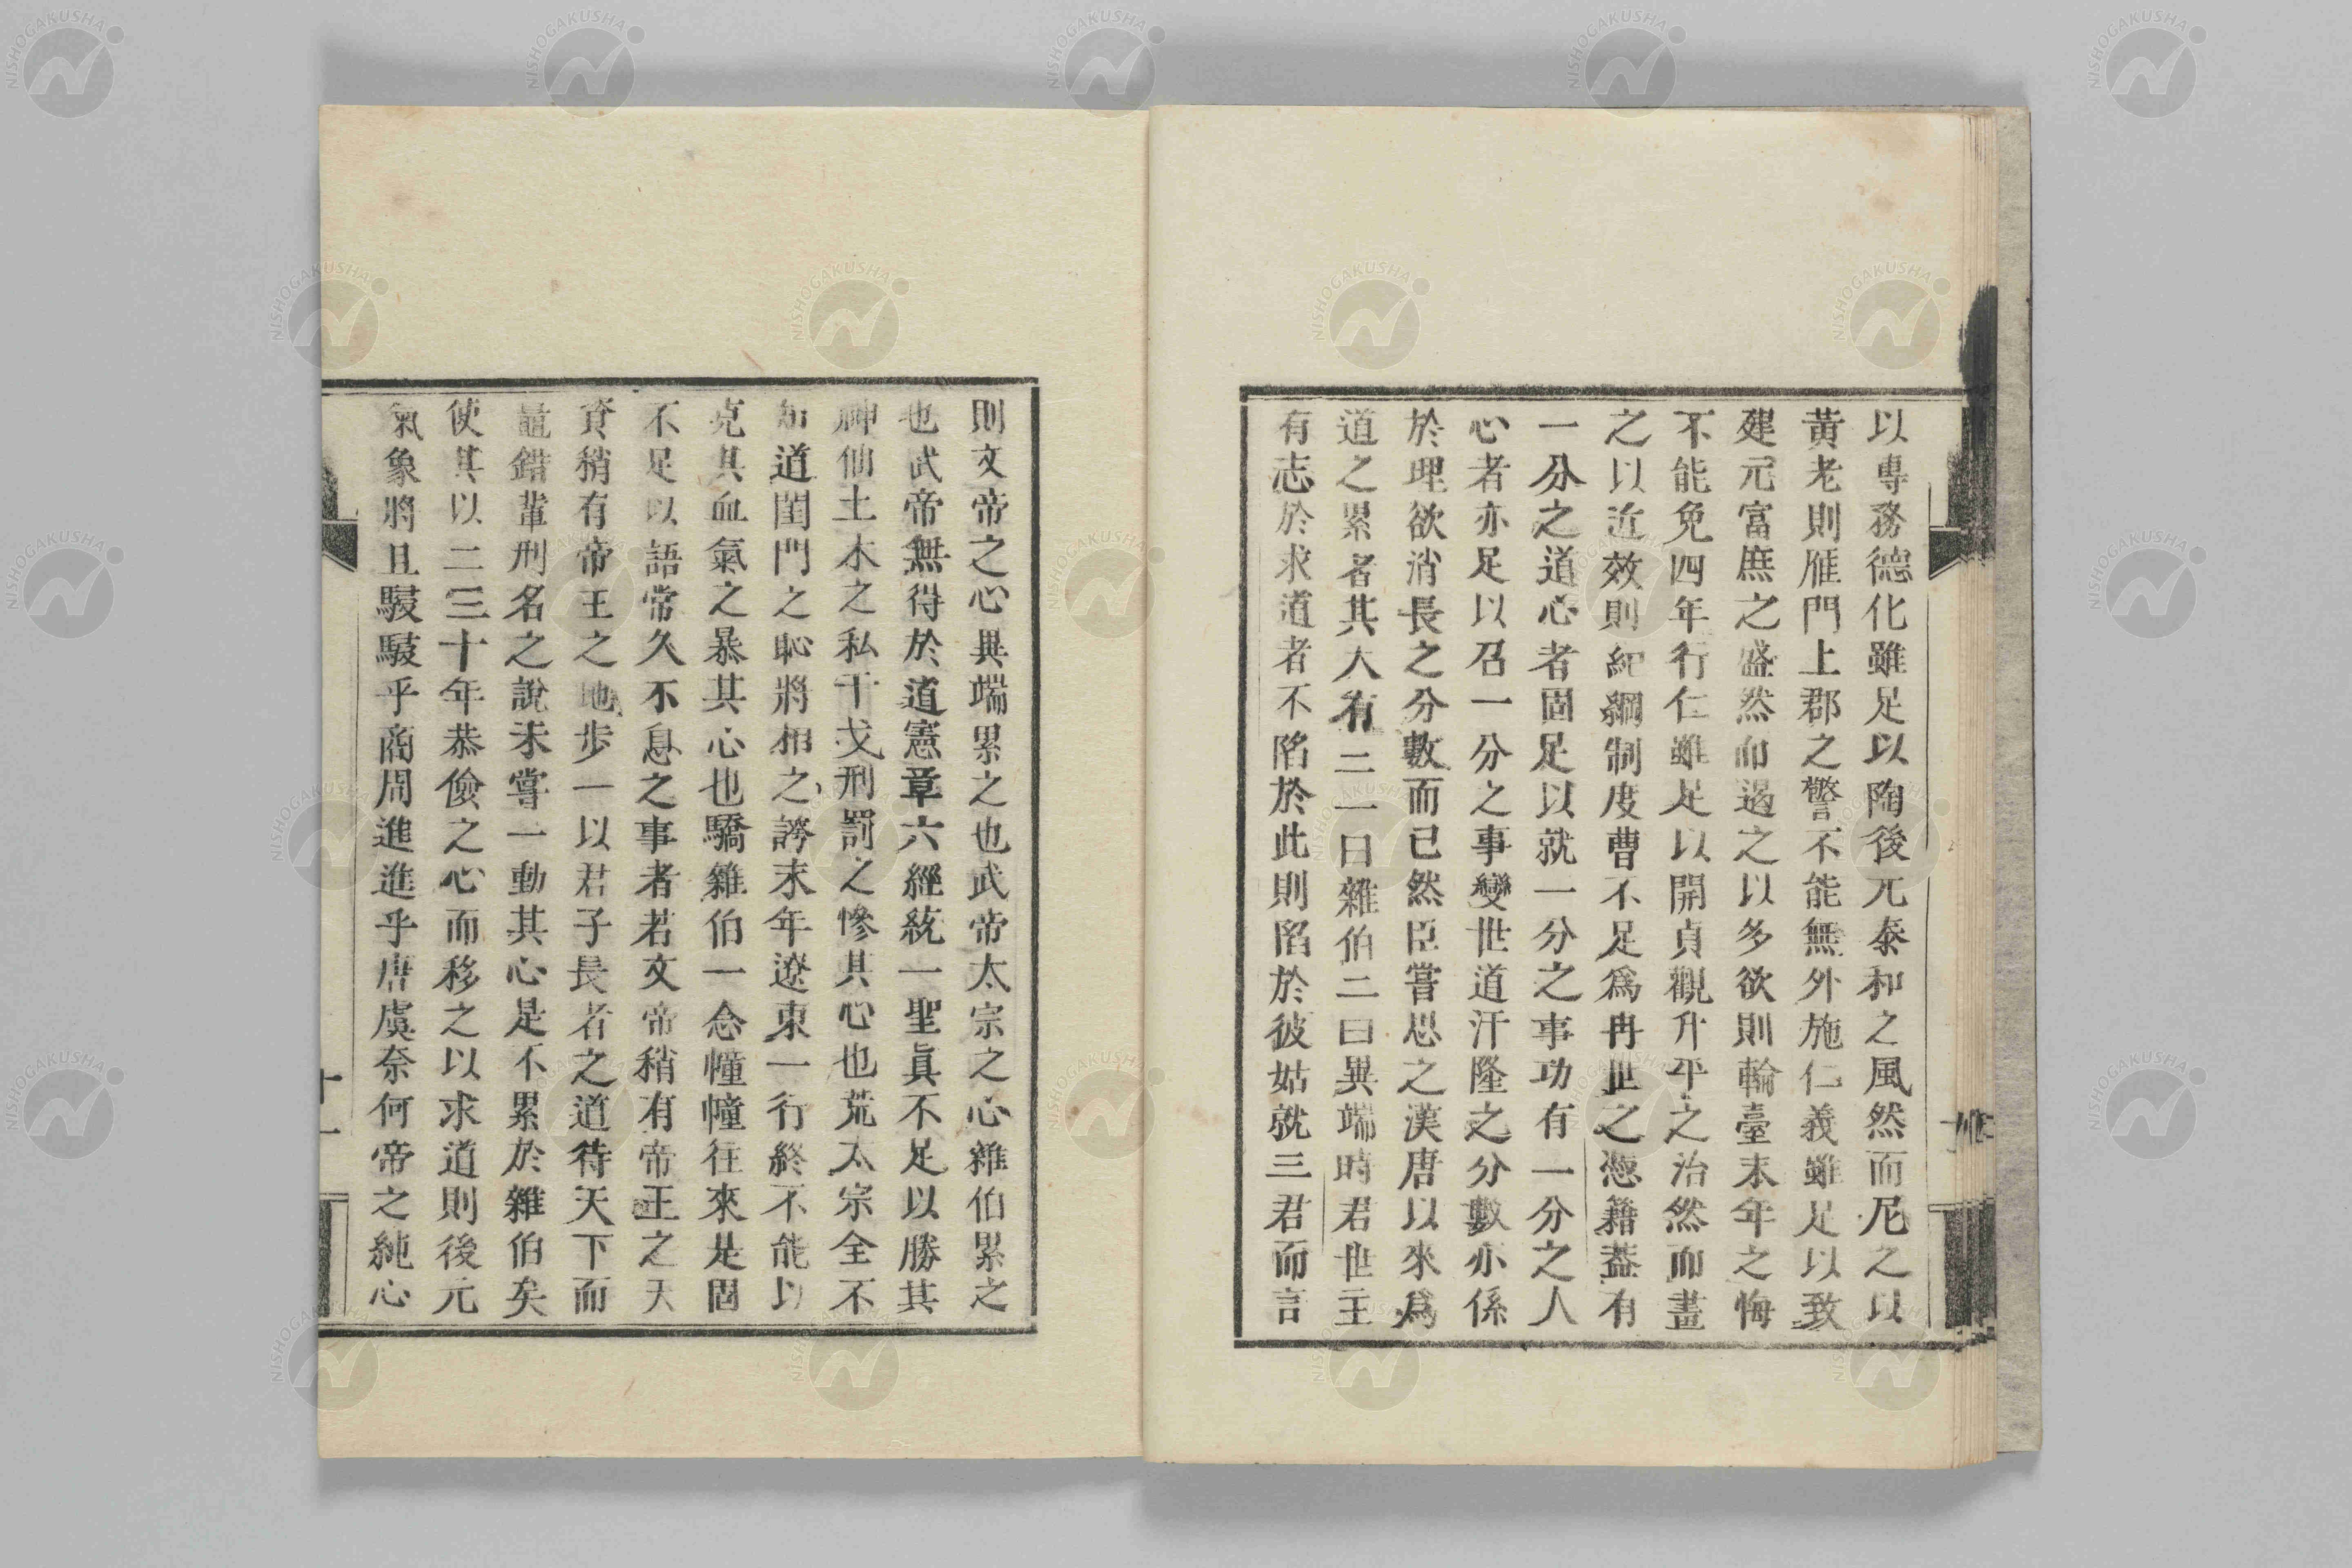 以專務德化雖足以陶後元泰和之風然而尼之以
黃老則雁門上郡之警不能無外施仁義雖足以致
建元富庶之盛然而遏之以多欲則輪臺末年之悔
不能免四年行仁雖足以開貞觀升平之治然而畫
之以近效則紀綱制度曹不足爲冉世之憑籍葢有
一分之道心者固足以就一分之事功有一分之人
心者亦足以召一分之事變世道汗隆之分數亦係
於理欲消長之分數而已然臣嘗思之漢唐以來爲
道之累者其大有二一曰雜伯二曰異端時君世主
有志於求道者不陷於此則陷於彼姑就三君而言
則文帝之心異端累之也武帝太宗之心雜伯累之
也武帝無得於道憲章六經統一聖眞不足以勝其
神仙土木之私干戈刑罰之慘其心也荒太宗全不
知道閨門之恥將相之誇末年遼東一行終不能以
克其血氣之暴其心也驕雜伯一念憧憧往來是固
不足以語常久不息之事者若文帝稍有帝王之天
資稍有帝王之地步一以君子長者之道待天下而
鼂錯輩刑名之說未嘗一動其心是不累於雜伯矣
使其以二三十年恭儉之心而移之以求道則後元
氣象將且駸駸乎商周進進乎唐虞奈何帝之純心
十一
NISHOGAKUSHA